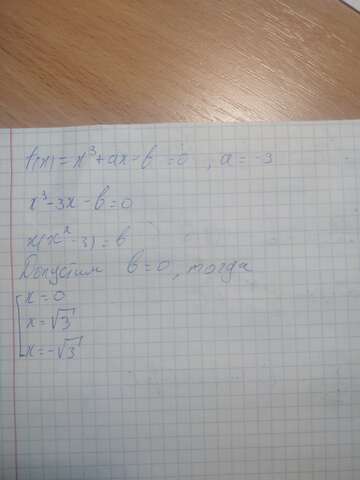 f(x) = x³ + ax - b = 0, a = -3
x³ - 3x - b = 0
x(x² - 3) = b
Допустим b = 0, тогда
x = 0
x = √3
x = -√3